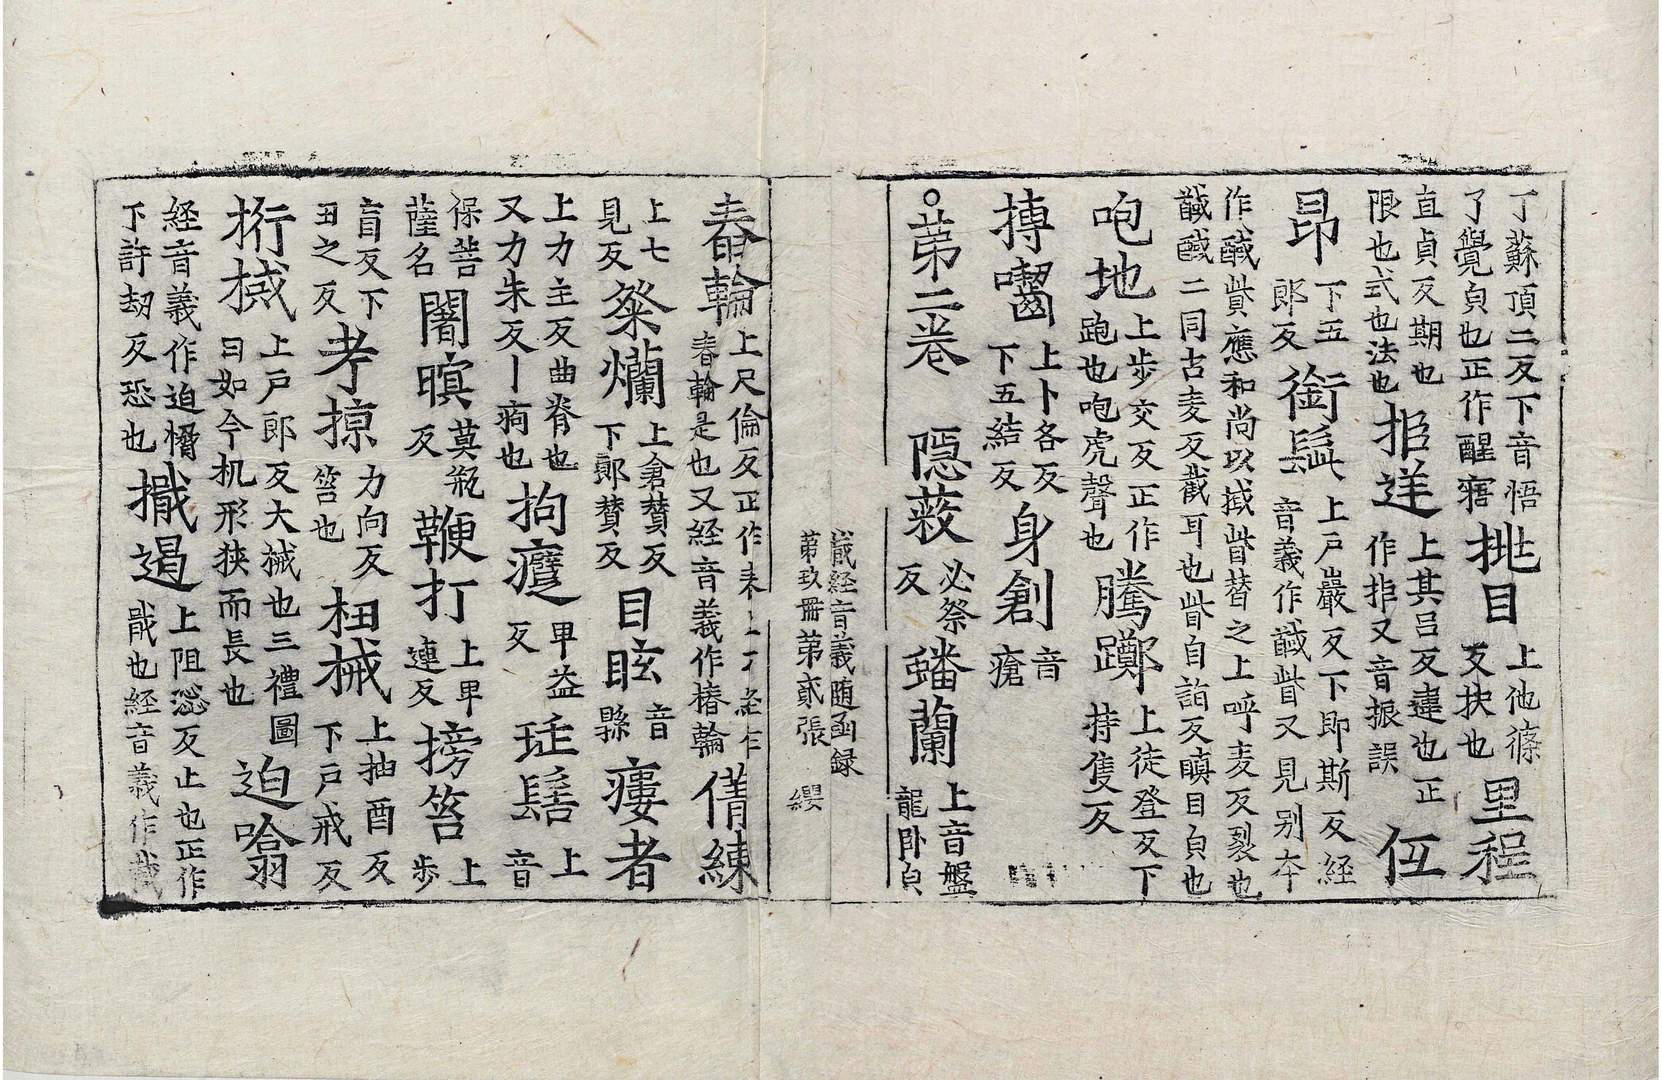 丁蘇頂二反下音悟
了覺皃也正作醒寤
挑目
上他篠
反抉也
里程
直貞反期也
限也式也法也
拒逆
上其呂反違也正
作拒又音振誤
伍
昂
下五
郎反
銜髭
上戶巖反下即斯反経
音義作齜呰又見別夲
作醎呰應和尚以搣眥替之上呼麦反裂也
二同古麦反截耳也呰自詣反瞋目皃也
咆地
上步交反正作
跑也咆虎聲也
騰躑
上徒登反下
持隻反
摶嚙
上卜各反
下五結反
身創
音
瘡
○第二卷
隠蔽
必祭
反
蟠蘭
上音盤
龍卧皃
蔵経音義随函録
第玖冊第貳張
纓
舂輪
上尺倫反正作
舂輪是也又経音義作椿輪
倩練
上七
見反
粲爛
上倉賛反
下郎賛反
目眩
音
縣
瘻者
上力主反曲脊也
又力朱反丨痀也
拘躄
甲益
反
髽
上
音
保菩
薩名
闇暝
莫瓶
反
鞭打
上卑
連反
搒笞
上
步
盲反下
丑之反
考掠
力向反
笞也
杻械
上抽酉反
下戶戒反
桁械
上戶郎反大械也三禮圖
曰如今机形狭而長也
迫
経音義作迫愶
下許刼反恐也
遏
上阻惢反止也正作
戢也経音義作